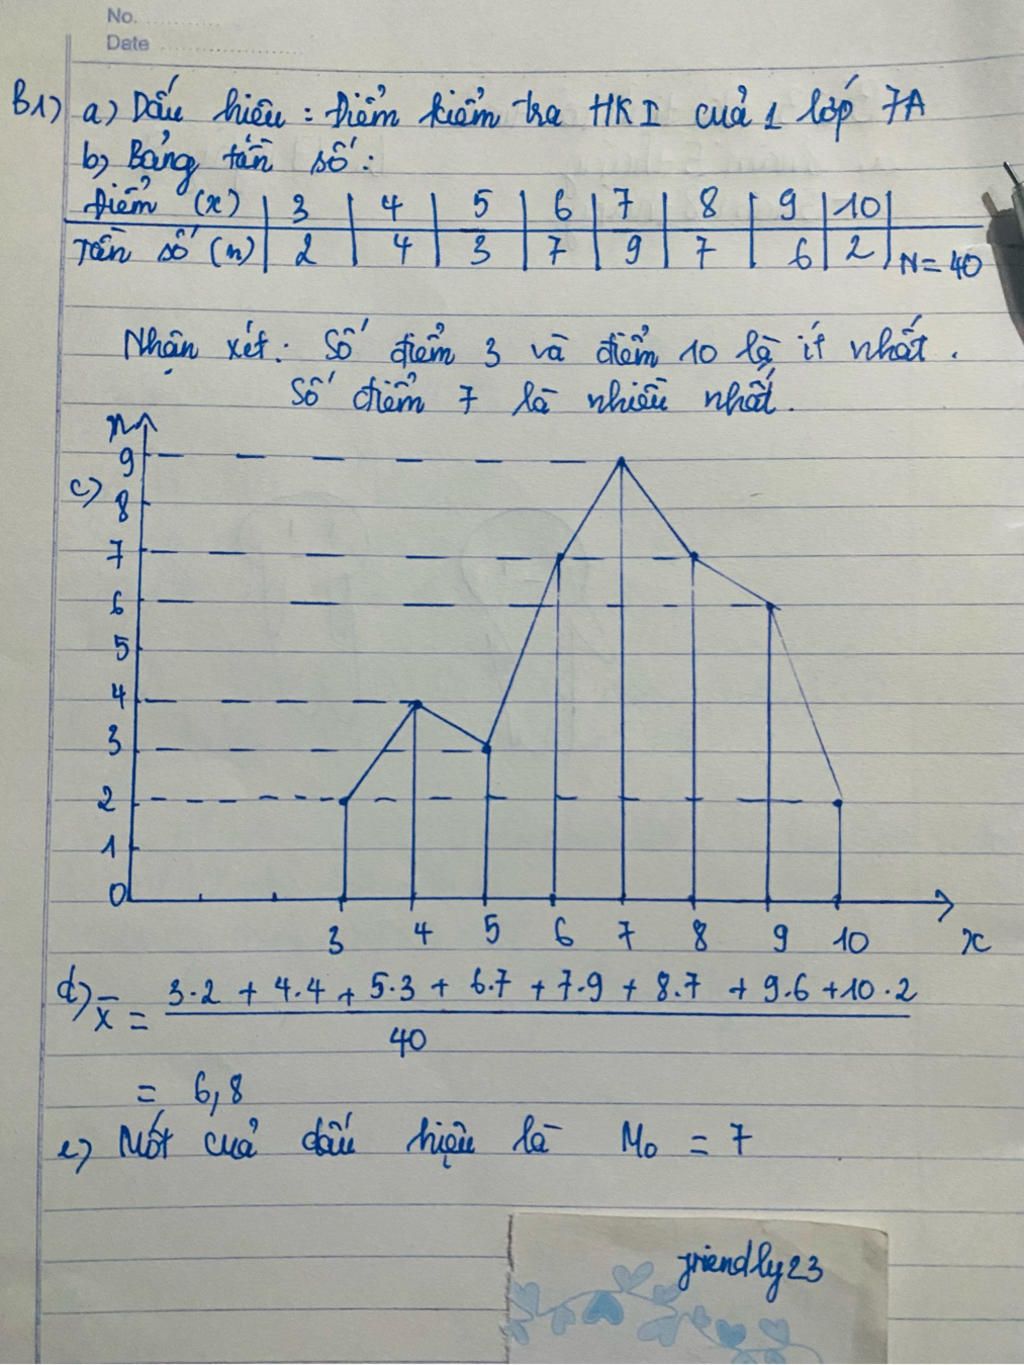 No.
Date
B1) a) Dấu hiệu : Điểm kiểm tra HKI của 1 lớp 7A
b) Bảng tần số :
Điểm (x) 3 4 5 6 7 8 9 10
Tần số (n) 2 4 3 7 9 7 6 2 N = 40
Nhận xét : Số điểm 3 và điểm 10 là ít nhất .
Số điểm 7 là nhiều nhất .
n
9
c)
8
7
6
5
4
3
2
1
0
3 4 5 6 7 8 9 10 x
d) x̄ = (3.2 + 4.4 + 5.3 + 6.7 + 7.9 + 8.7 + 9.6 + 10.2
40
= 6,8
e) Mốt của dấu hiệu là M₀ = 7
friendly23